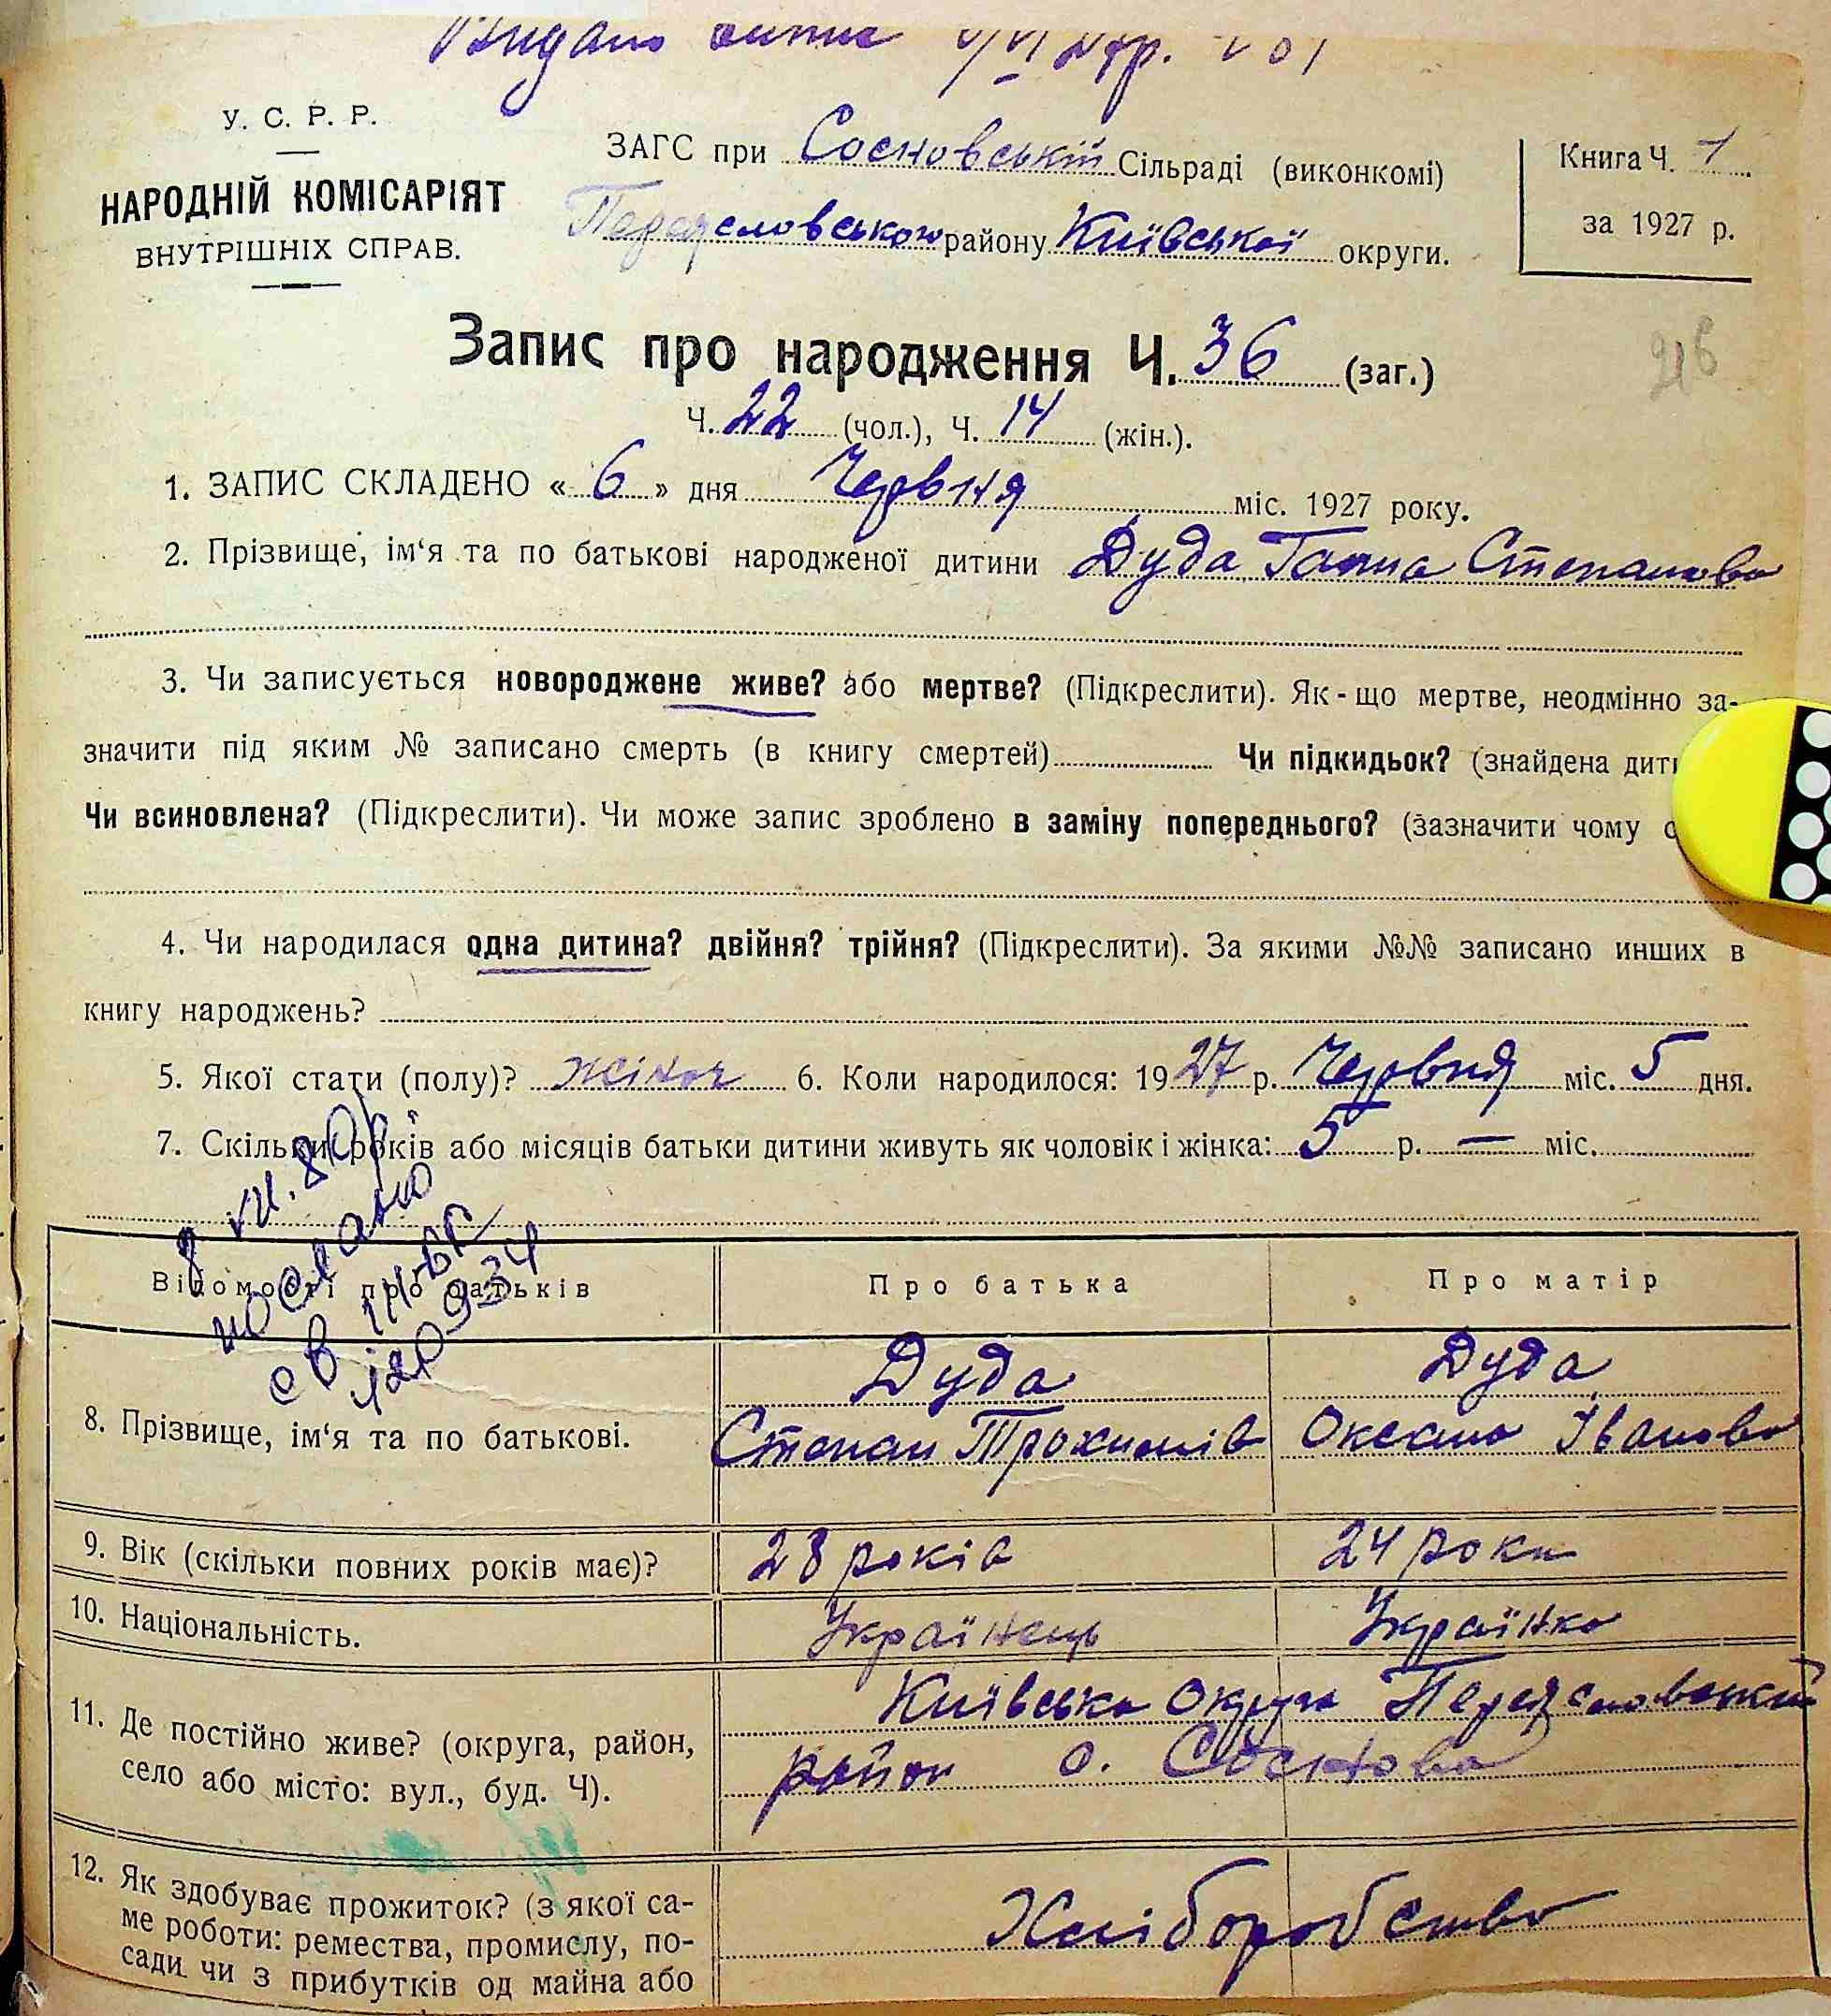 Видано випис
У. С. Р. Р.
НАРОДНІЙ КОМІСАРІЯТ
ВНУТРІШНІХ СПРАВ.
ЗАГС при Сосновській Сільраді (виконкомі)
Переяславського району Київської округи.
Книга Ч. 1
за 1927 р.
Запис про народження Ч. 36 (заг.)
Ч. 22 (чол.), Ч. 14 (жін.).
1. ЗАПИС СКЛАДЕНО « 6 » дня Червня міс. 1927 року.
2. Прізвище, ім‘я та по батькові народженої дитини Дуда Ганна Степанова
3. Чи записується новороджене живе? або мертве? (Підкреслити). Як-що мертве, неодмінно за-
значити під яким № записано смерть (в книгу смертей) Чи підкидьок? (знайдена дит
Чи всиновлена? (Підкреслити). Чи може запис зроблено в заміну попереднього? (зазначити чому
4. Чи народилася одна дитина? двійня? трійня? (Підкреслити). За якими №№ записано инших в
книгу народжень?
5. Якої стати (полу)? жіноч 6. Коли народилося: 1927 р. Червня міс. 5 дня.
7. Скільки років або місяців батьки дитини живуть як чоловік і жінка: 5 р. — міс.
послано
св
Відомості про батьків Про батька Про матір
8. Прізвище, ім‘я та по батькові.
Дуда
Степан Трохимів
Дуда
Оксана Іванова
9. Вік (скільки повних років має)? 28 років 24 роки
10. Національність. Українець Українка
11. Де постійно живе? (округа, район,
село або місто: вул., буд. Ч).
Київська Округа Переяславський
район с. Соснова
12. Як здобуває прожиток? (з якої са-
ме роботи: ремества, промислу, по-
сади чи з прибутків од майна або
Хліборобство